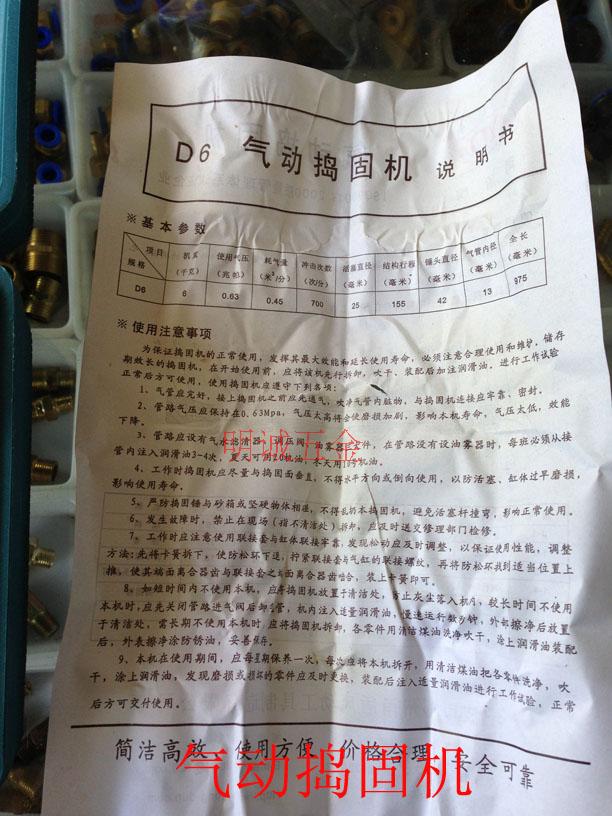 D6 气动捣固机 说明书
※ 基本参数
项目 机重 使用气压 耗气量 冲击次数 活塞直径 结构行程 锤头直径 气管内径 全长
规格 (千克) (兆帕) (米³/分) (次/分) (毫米) (毫米) (毫米) (毫米) (毫米)
D6 6 0.63 0.45 700 25 155 42 13 975
※ 使用注意事项
为保证捣固机的正常使用，发挥其最大效能和延长使用寿命，必须注意合理使用和维护。储存
期效长的捣固机，在开始使用前，应将该机先行拆卸，吹干、装配后加注润滑油，进行工作试验
正常后方可使用，使用捣固机应遵守下列各项：
1、气管应完好，接上捣固机之前应先通气，吹净气管内脏物，与捣固机连接应牢靠、密封。
2、管路气压应保持在0.63Mpa，气压太高得会使磨损加剧，影响本机寿命，气压太低，效能
下降。
3、管路应设有气水滤清器、调压阀、油雾器 件，在管路没有设油雾器时，每班必须从接
管内注入润滑油3-4次，夏天可用20机油，冬天用10号机油。
明诚五金
4、工作时捣固机应尽量与捣固面垂直，不得水平方向或倒向使用，以防活塞、缸体过早磨损，
影响使用寿命。
5、严防捣固锤与砂箱或坚硬物体相碰，不得乱扔本捣固机，避免活塞杆撞弯，影响正常使用。
6、发生故障时，禁止在现场（指不清洁处）拆卸，应及时送交修理部门检修。
7、工作时应注意使用联接套与缸体联接牢靠，发现松动应及时调整，以保证使用性能，调整
方法：先将卡簧拆下，使防松环下退，拧紧联接套与气缸的联接螺纹，再将防松环扳到适当位置上
推，使其端面离合器齿与联接套之端面离合器齿啮合，装上卡簧即可。
8、如短时间内不使用本机，应将捣固机放置于清洁处，防止灰尘落入机内，较长时间不使用
本机时，应先关闭管路进气阀后卸气管，机内注入适量润滑油，慢速运行数分钟，外表擦净后放置
于清洁处，需长期不使用本机时，应将捣固机拆卸，各零件用清洁煤油洗净吹干，涂上润滑油装配
后，外表擦净涂防锈油，妥善保存。
9、本机在使用期间，应每星期保养一次，每次应将本机拆开，用清洁煤油把各零件洗净，吹
干，涂上润滑油，发现磨损或损坏的零件应及时更换，装配后注入适量润滑油进行工作试验，正常
后方可交付使用。
简洁高效 使用方便 价格合理 安全可靠
气动捣固机